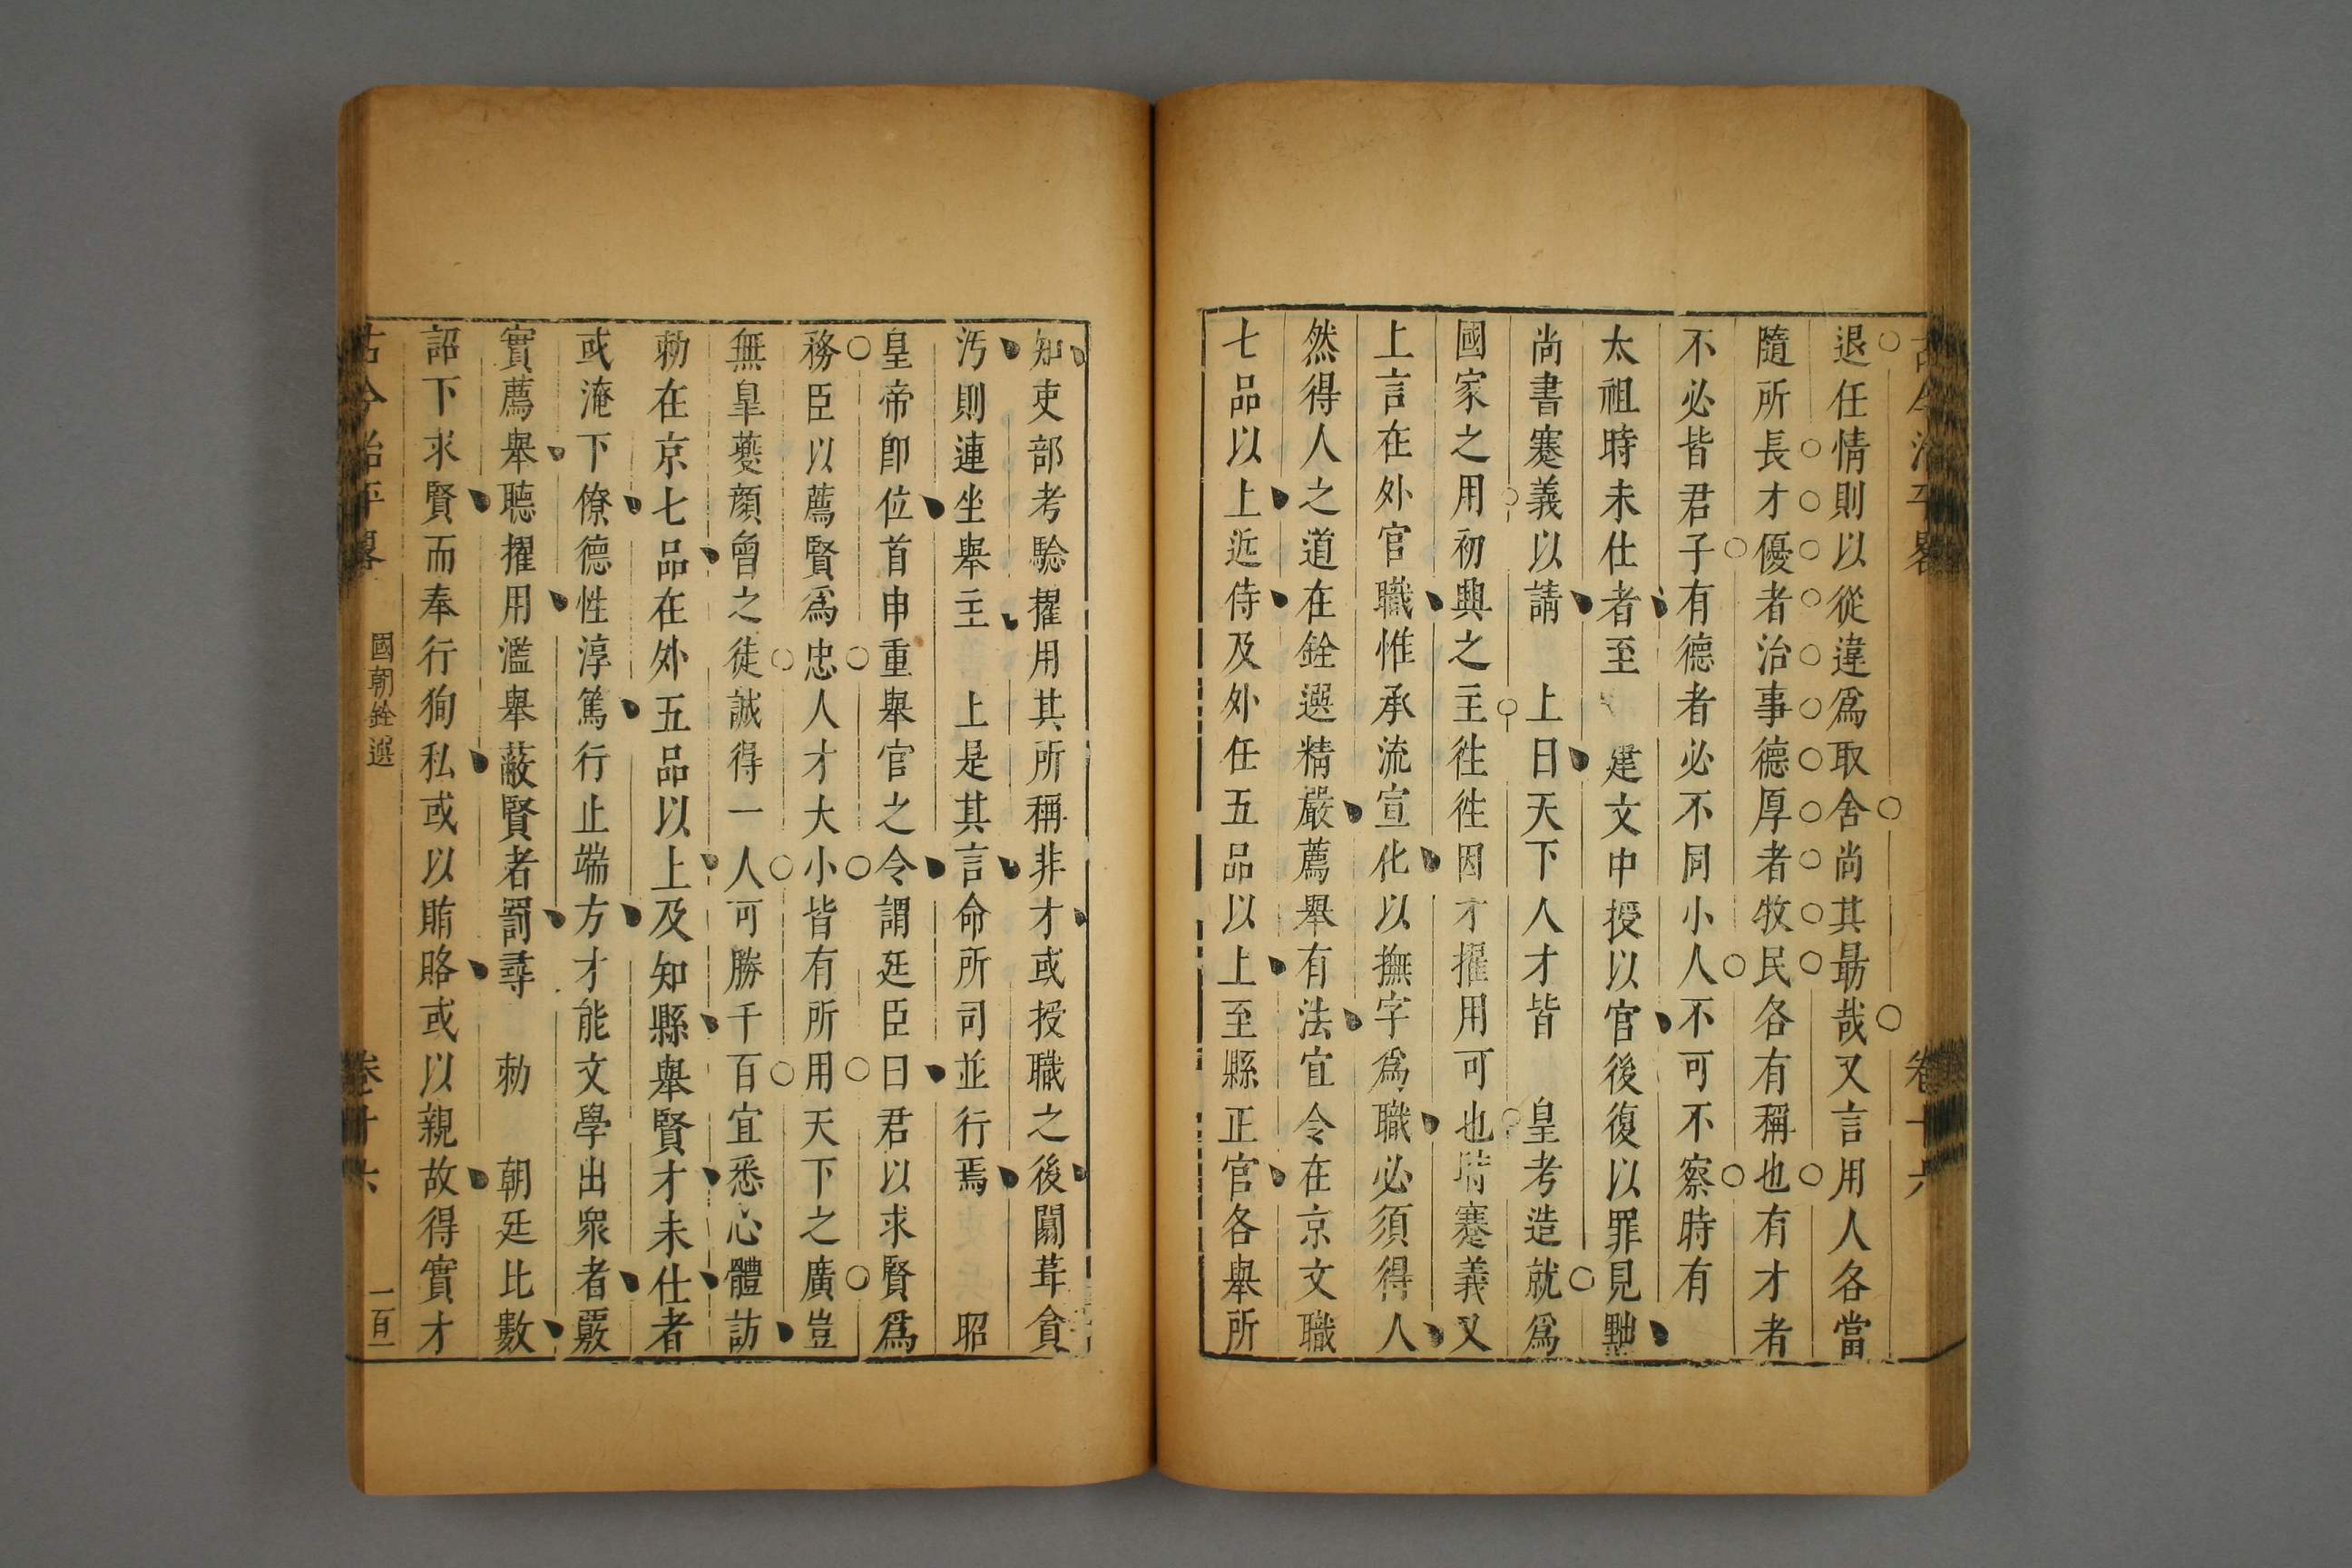 古今治平畧 卷十六
退任情則以從違爲取舍尚其最哉又言用人各當
隨所長才優者治事德厚者牧民各有稱也有才者
不必皆君子有德者必不同小人不可不察時有
太祖時未仕者至 建文中授以官後復以罪見黜
尚書蹇義以請 上曰天下人才皆 皇考造就爲
國家之用初興之主徃徃因才擢用可也時蹇義又
上言在外官職惟承流宣化以撫字爲職必須得人
然得人之道在銓選精嚴薦舉有法宜令在京文職
七品以上近侍及外任五品以上至縣正官各舉所
知吏部考驗擢用其所稱非才或授職之後闒葺貪
汚則連坐舉主 上是其言命所司並行焉 昭
皇帝卽位首申重舉官之令謂廷臣曰君以求賢爲
務臣以薦賢爲忠人才大小皆有所用天下之廣豈
無臯夔顔曾之徒誠得一人可勝千百宜悉心體訪
勅在京七品在外五品以上及知縣舉賢才未仕者
或淹下僚德性淳篤行止端方才能文學出衆者覈
實薦舉聽擢用濫舉蔽賢者罰尋 勅 朝廷比數
詔下求賢而奉行狥私或以賄賂或以親故得實才
古今治平畧 國朝銓選 卷十六 一百一